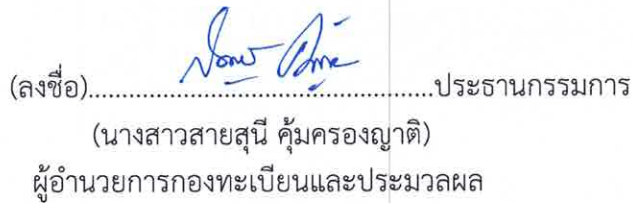 (ลงชื่อ)..................................................ประธานกรรมการ
(นางสาวสายสุนี คุ้มครองญาติ)
ผู้อำนวยการกองทะเบียนและประมวลผล